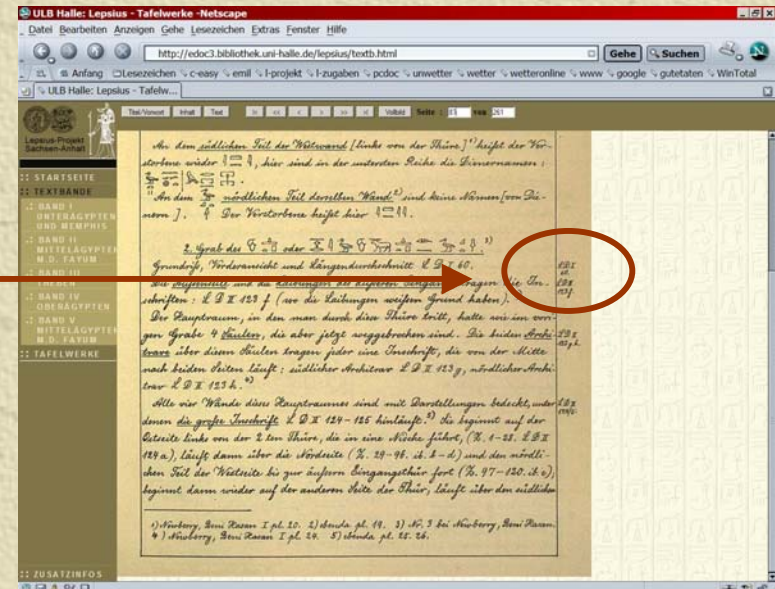 ULB Halle: Lepsius - Tafelwerke -Netscape
Datei Bearbeiten Anzeigen Gehe Lesezeichen Extras Fenster Hilfe
http://edoc3.bibliothek.uni-halle.de/lepsius/textb.html
Gehe Suchen
Anfang Lesezeichen c-easy emil l-projekt l-zugaben pcdoc unwetter wetter wetteronline www google gutetaten WinTotal
ULB Halle: Lepsius - Tafelw...
Titel/Vorwort Inhalt Text |< << < > >> >| Vollbild Seite : 83 von 261
Lepsius-Projekt
Sachsen-Anhalt
:: STARTSEITE
:: TEXTBÄNDE
.: BAND I
UNTERÄGYPTEN
UND MEMPHIS
.: BAND II
MITTELÄGYPTEN
M.D. FAYUM
.: BAND III
THEBEN
.: BAND IV
OBERÄGYPTEN
.: BAND V
MITTELÄGYPTEN
M.D. FAYUM
:: TAFELWERKE
:: ZUSATZINFOS
An dem südlichen Teil der Westwand [links von der Thüre] 1) heißt der Ver-
storbene wieder , hier sind in der untersten Reihe die Dienernamen :
An dem nördlichen Teil derselben Wand 2) sind keine Namen [von Die-
nern]. Der Verstorbene heißt hier
2. Grab des oder 3)
Grundriß, Vorderansicht und Längendurchschnitt L D I 60.
Die Außenseite und die Laibungen des äußeren Eingangs tragen die In-
schriften : L D II 123 f (wo die Laibungen weißen Grund haben).
Der Hauptraum, in den man durch diese Thüre tritt, hatte wie im vori-
gen Grabe 4 Säulen, die aber jetzt weggebrochen sind. Die beiden Archi-
trave über diesen Säulen tragen jeder eine Inschrift, die von der Mitte
nach beiden Seiten läuft : südlicher Architrav L D II 123 g, nördlicher Archi-
trav L D II 123 h. 4)
Alle vier Wände dieses Hauptraumes sind mit Darstellungen bedeckt, unter
denen die große Inschrift L D II 124-125 hinläuft. 5) Sie beginnt auf der
Ostseite links von der 2ten Thüre, die in eine Nische führt, (Z. 1-28. L D II
124 a), läuft dann über die Nordseite (Z. 29-96. ib. b-d) und den nördli-
chen Teil der Westseite bis zur äußern Eingangsthür fort (Z. 97-120. ib. e),
beginnt dann wieder auf der anderen Seite der Thür, läuft über den südlichen
1) Newberry, Beni Hasan I pl. 20. 2) ebenda pl. 19. 3) Nr. 3 bei Newberry, Beni Hasan.
4) Newberry, Beni Hasan I pl. 24. 5) ebenda pl. 25. 26.
LD I
60.
LD II
123 f
LD II
123 g h.
LD II